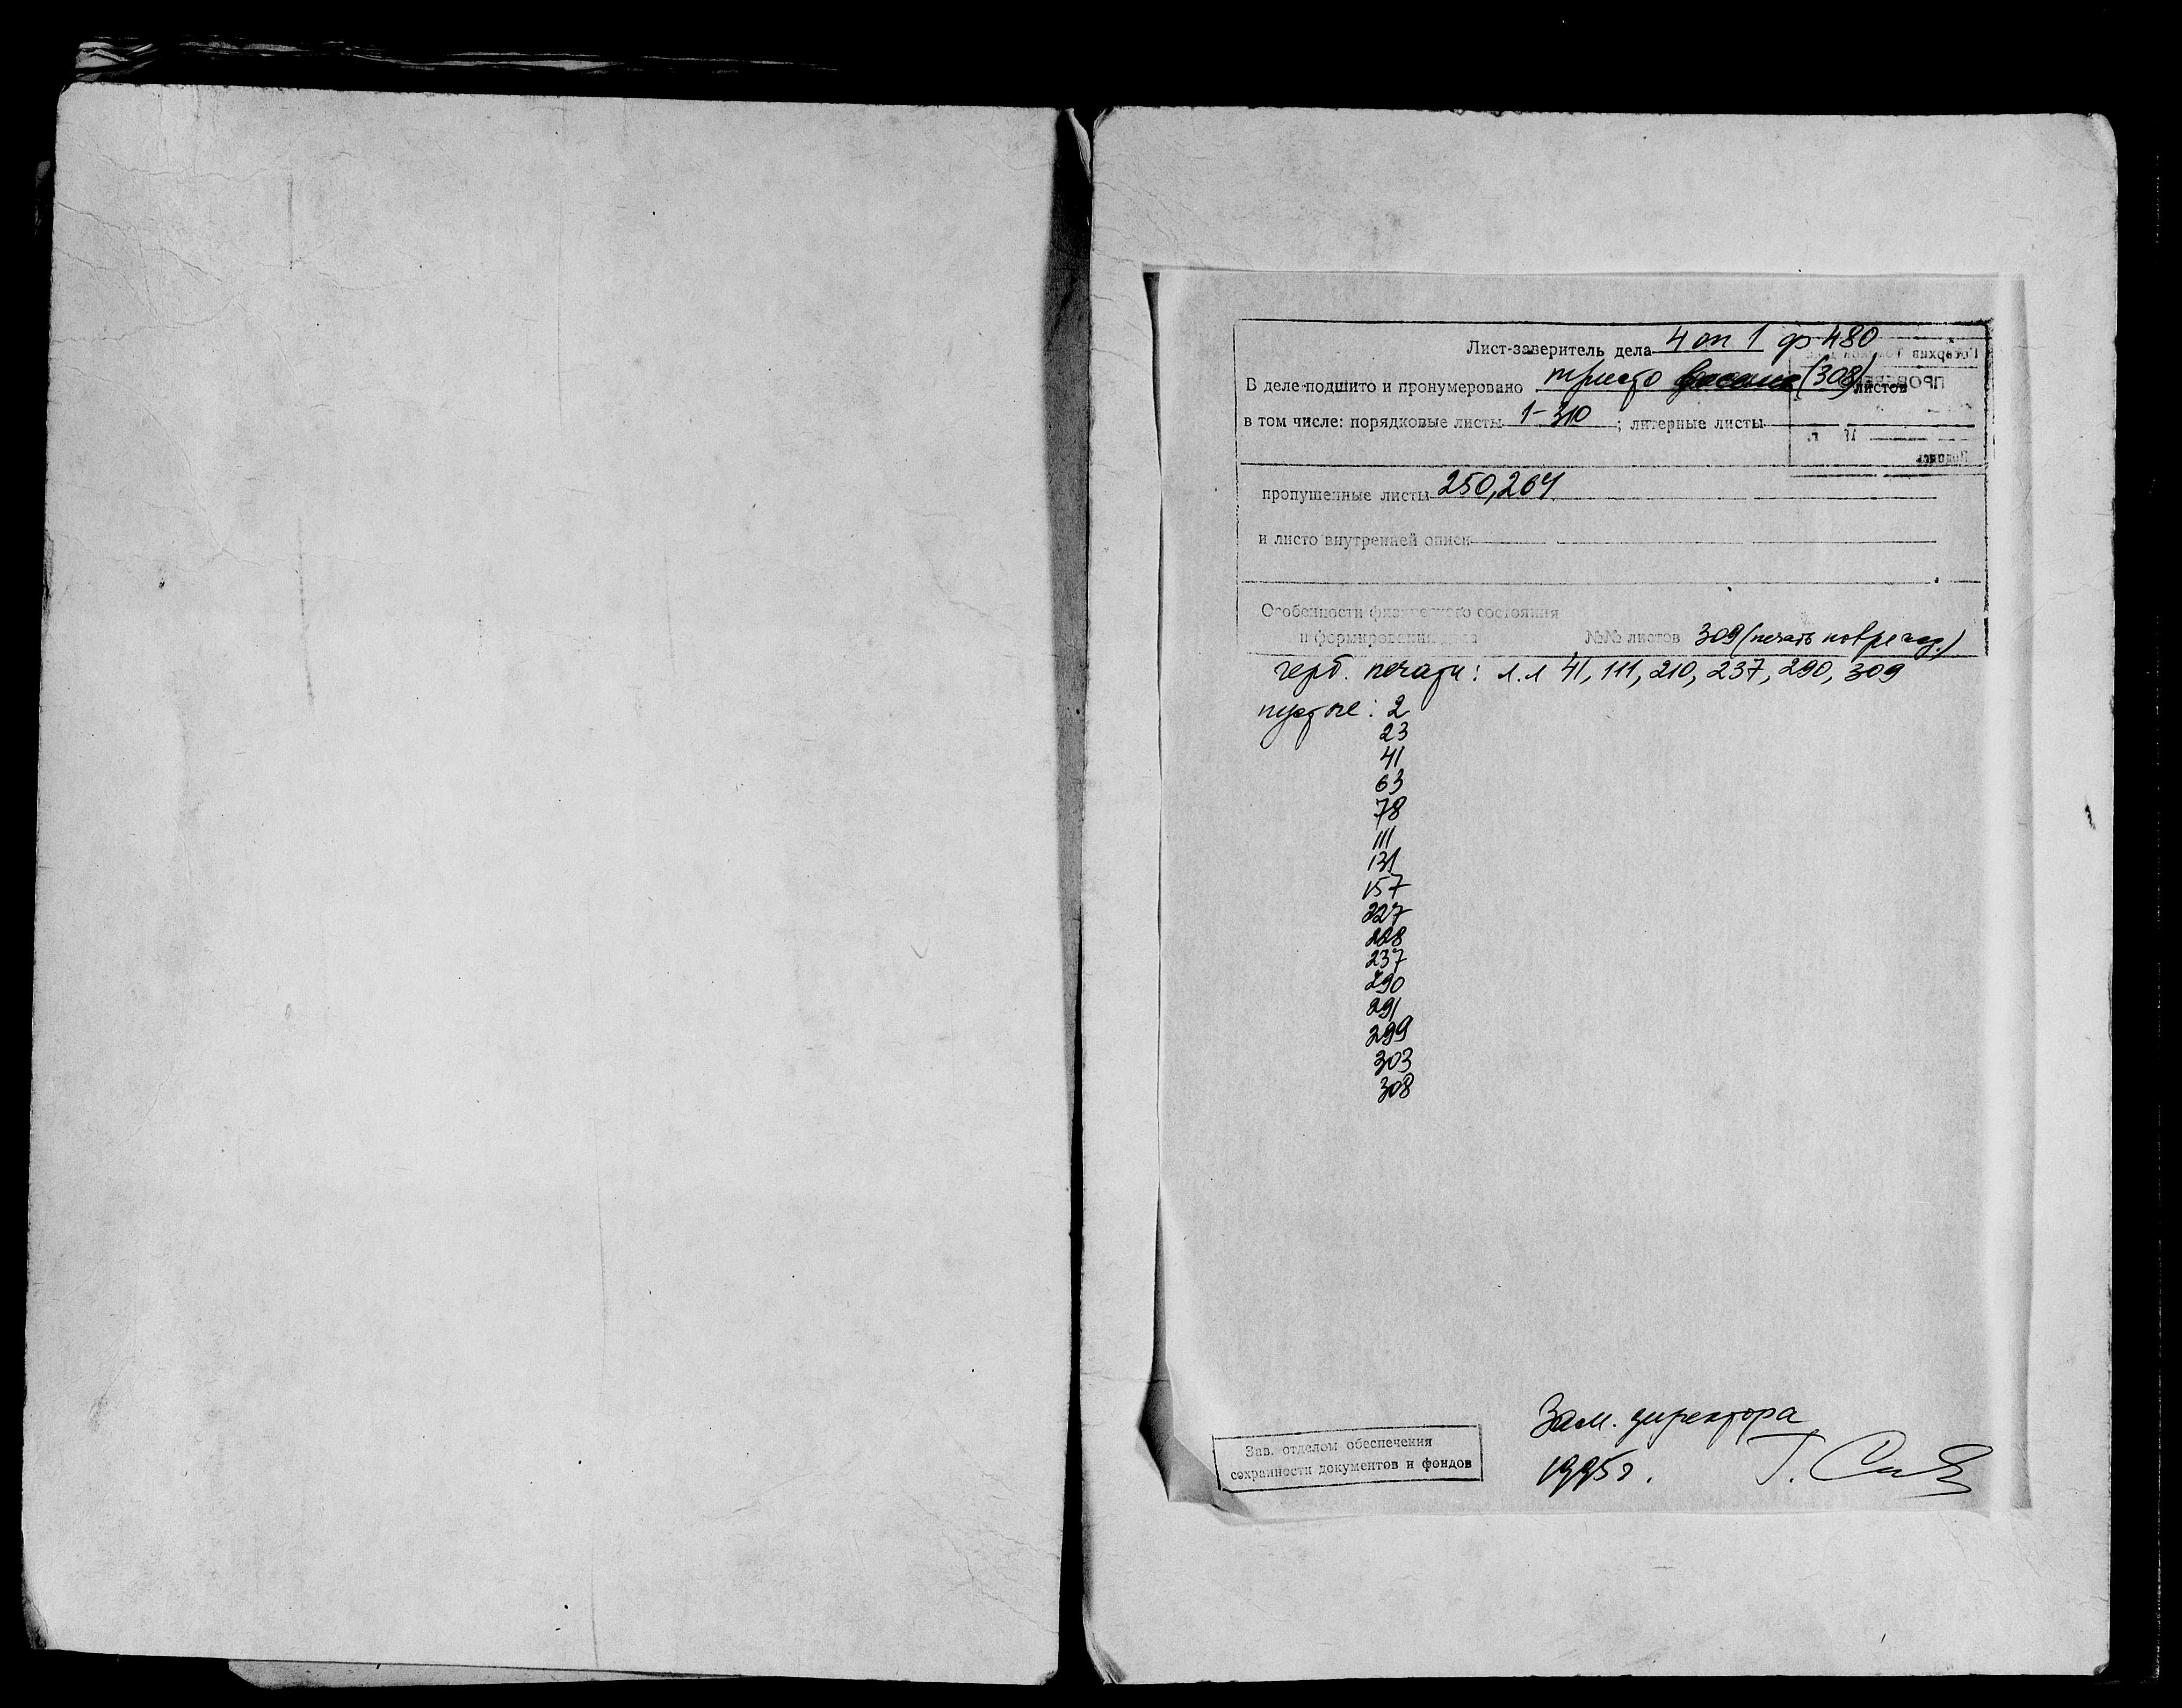 Лист-заверитель дела 4 оп 1 ф 480
В деле подшито и пронумеровано триста восемь (308) листов
в том числе: порядковые листы 1-310 ; литерные листы
пропущенные листы 250,264
и листо внутренней описи
Особенности физического состояния
и формирования дела №№ листов 309 (печать поврежд.)
герб. печати: л.л 41, 111, 210, 237, 290, 309
пустые: 2
23
41
63
78
111
131
157
227
228
237
290
291
299
303
308
Зам. директора
Зав. отделом обеспечения
сохранности документов и фондов
1995г. Г.